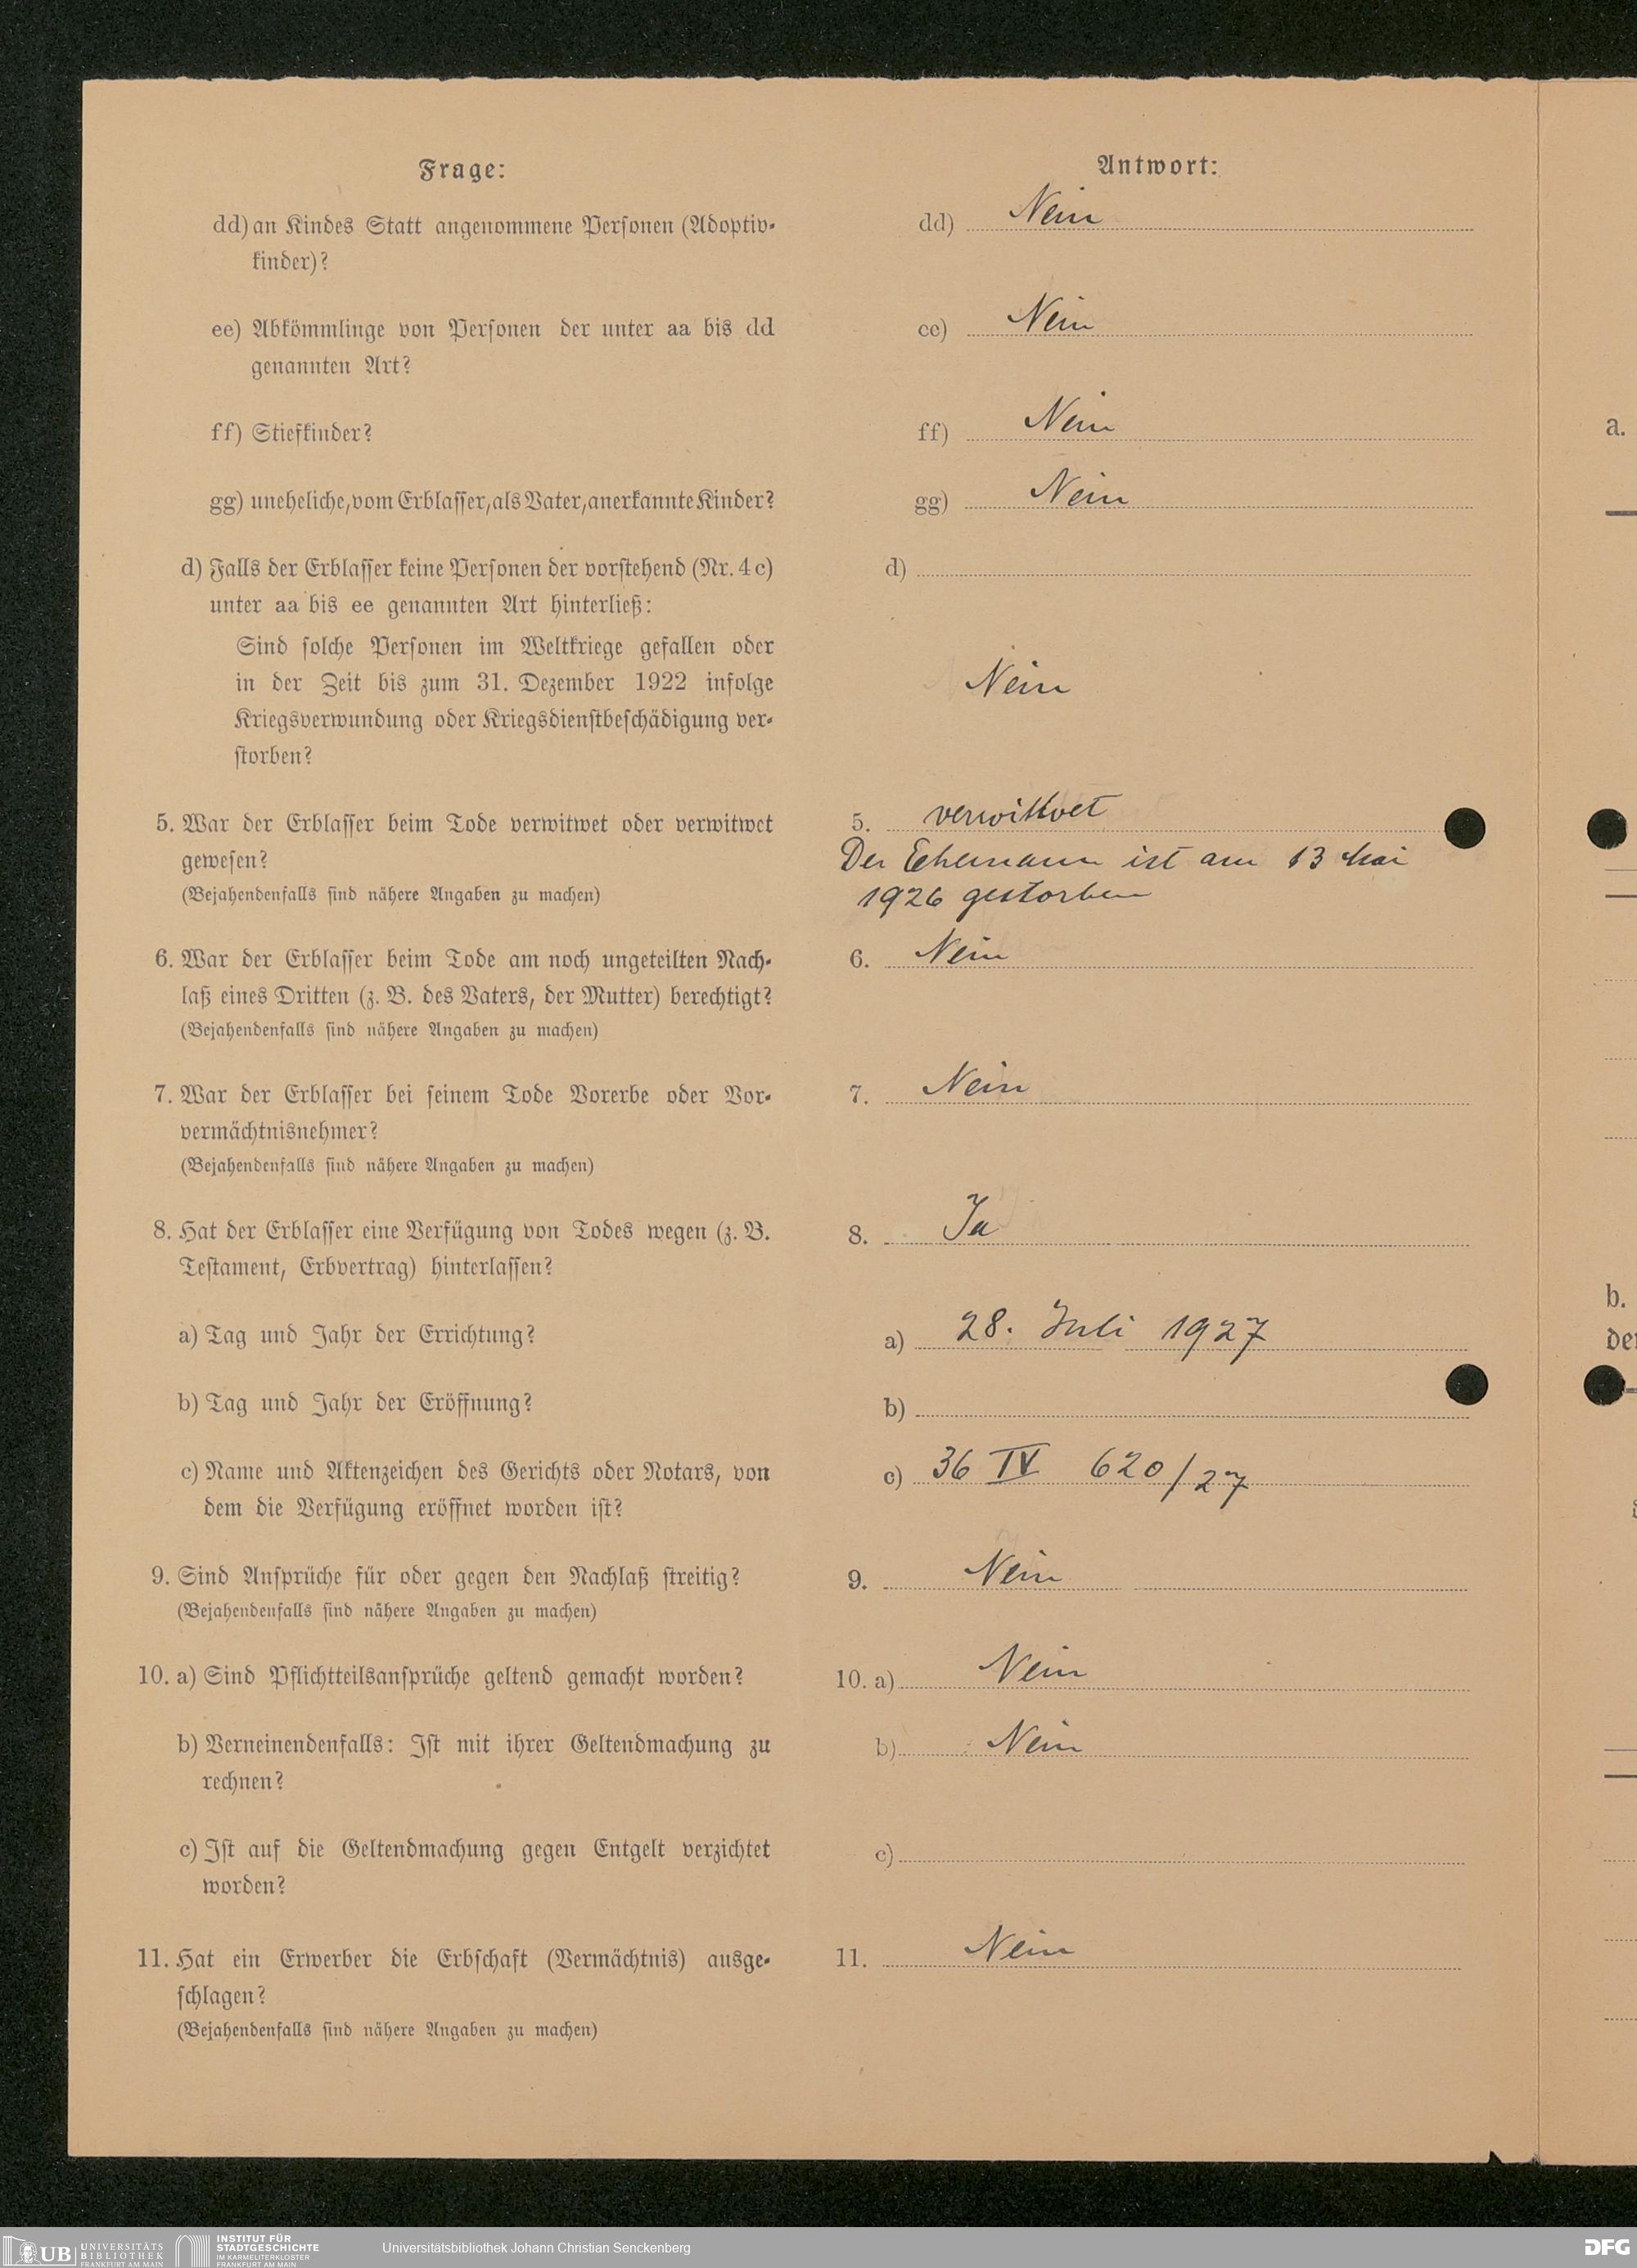 Frage:
Antwort:
dd) an Kindes Statt angenommene Personen (Adoptiv-
kinder)?
dd) Nein
ee) Abkömmlinge von Personen der unter aa bis dd
genannten Art?
ee) Nein
ff) Stiefkinder?
ff) Nein
gg) uneheliche, vom Erblasser, als Vater, anerkannte Kinder?
gg) Nein
d) Falls der Erblasser keine Personen der vorstehend (Nr. 4 c)
unter aa bis ee genannten Art hinterließ:
Sind solche Personen im Weltkriege gefallen oder
in der Zeit bis zum 31. Dezember 1922 infolge
Kriegsverwundung oder Kriegsdienstbeschädigung ver-
storben?
d)
Nein
5. War der Erblasser beim Tode verwitwet oder verwitwet
gewesen?
(Bejahendenfalls sind nähere Angaben zu machen)
5. verwittwet
Der Ehemann ist am 13 Mai
1926 gestorben
6. War der Erblasser beim Tode am noch ungeteilten Nach-
laß eines Dritten (z. B. des Vaters, der Mutter) berechtigt?
(Bejahendenfalls sind nähere Angaben zu machen)
6. Nein
7. War der Erblasser bei seinem Tode Vorerbe oder Vor-
vermächtnisnehmer?
(Bejahendenfalls sind nähere Angaben zu machen)
7. Nein
8. Hat der Erblasser eine Verfügung von Todes wegen (z. B.
Testament, Erbvertrag) hinterlassen?
8. Ja
a) Tag und Jahr der Errichtung?
a) 28. Juli 1927
b) Tag und Jahr der Eröffnung?
b)
c) Name und Aktenzeichen des Gerichts oder Notars, von
dem die Verfügung eröffnet worden ist?
c) 36 IV 620/27
9. Sind Ansprüche für oder gegen den Nachlaß streitig?
(Bejahendenfalls sind nähere Angaben zu machen)
9. Nein
10. a) Sind Pflichtteilsansprüche geltend gemacht worden?
10. a) Nein
b) Verneinendenfalls: Ist mit ihrer Geltendmachung zu
rechnen?
b) Nein
c) Ist auf die Geltendmachung gegen Entgelt verzichtet
worden?
c)
11. Hat ein Erwerber die Erbschaft (Vermächtnis) ausge-
schlagen?
(Bejahendenfalls sind nähere Angaben zu machen)
11. Nein
a.
b.
UB UNIVERSITÄTS
BIBLIOTHEK
FRANKFURT AM MAIN
INSTITUT FÜR
STADTGESCHICHTE
IM KARMELITERKLOSTER
FRANKFURT AM MAIN
Universitätsbibliothek Johann Christian Senckenberg
DFG